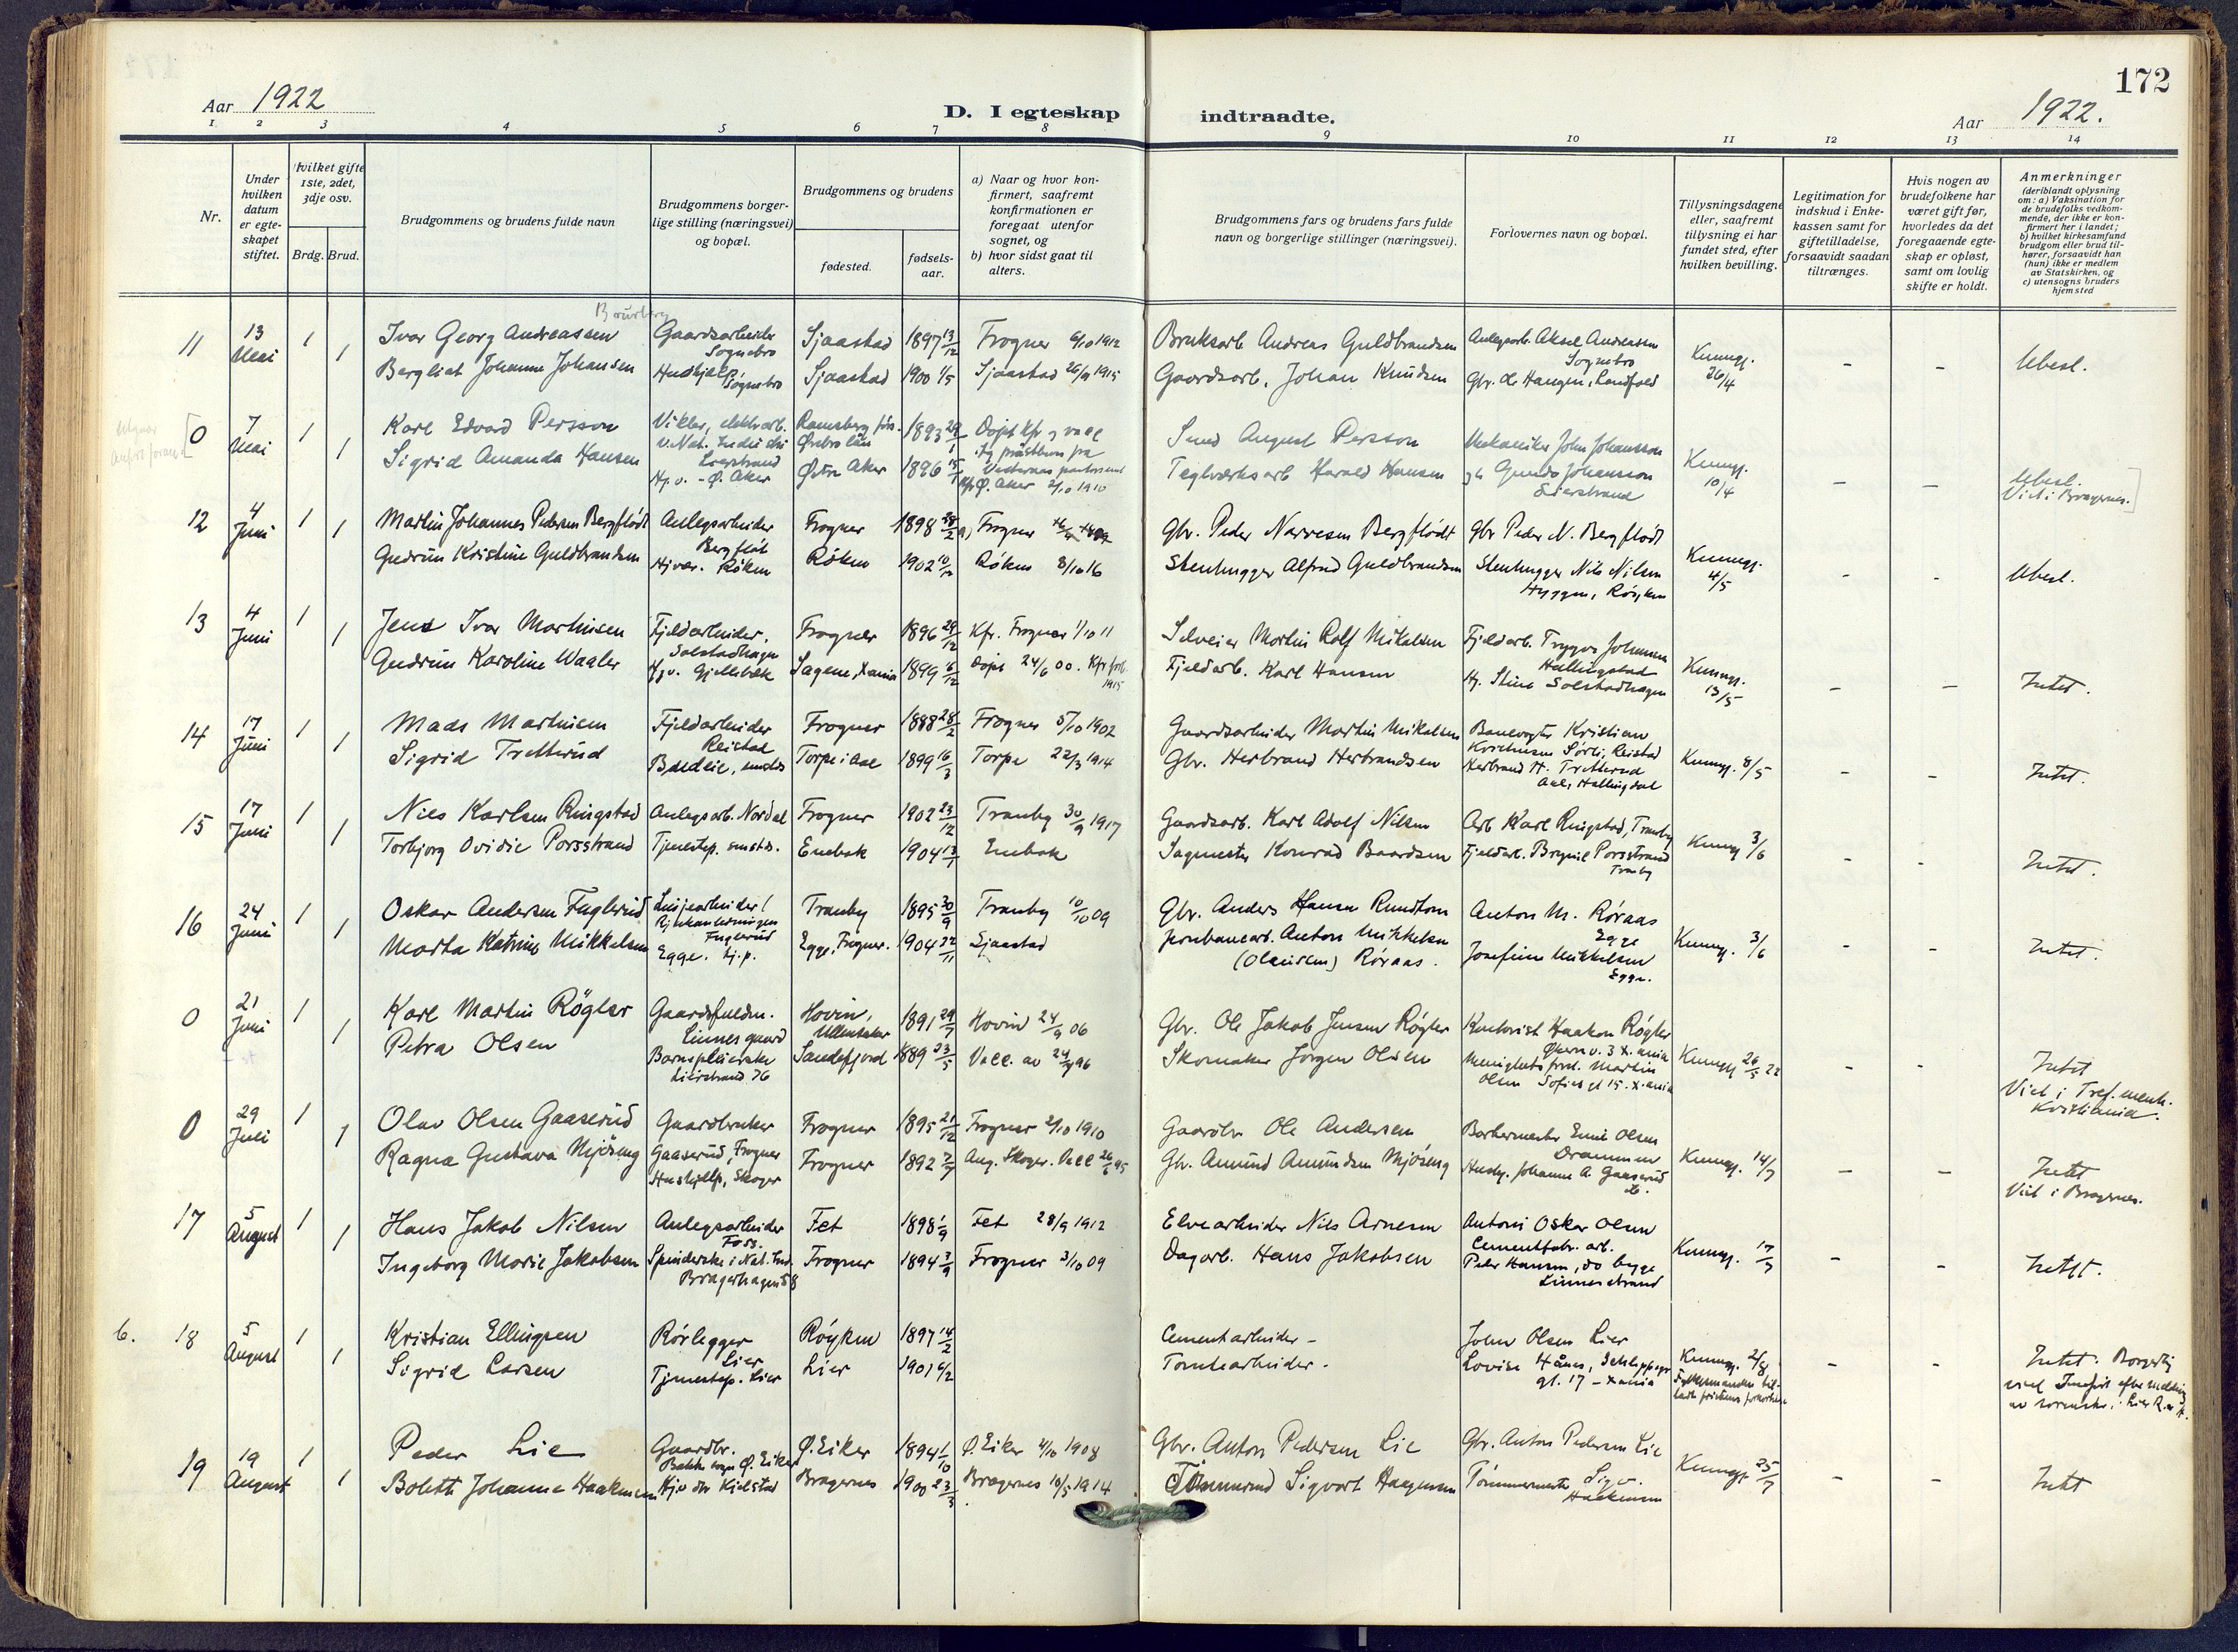 172
Aar 1922
D. I egteskap indtraadte.
Aar 1922.
1 2 3 4 5 6 7 8 9 10 11 12 13 14
Nr.
Under hvilken datum er egteskapet stiftet.
Hvilket gifte 1ste, 2det, 3dje osv.
Brdg. Brud.
Brudgommens og brudens fulde navn
Brudgommens borgerlige stilling (næringsvei) og bopæl.
Brudgommens og brudens
fødested.
fødselsaar.
a) Naar og hvor konfirmert, saafremt konfirmationen er foregaat utenfor sognet, og
b) hvor sidst gaat til alters.
Brudgommens fars og brudens fars fulde navn og borgerlige stillinger (næringsvei).
Forlovernes navn og bopæl.
Tillysningsdagene eller, saafremt tillysning ei har fundet sted, efter hvilken bevilling.
Legitimation for indskud i Enkekassen samt for giftetilladelse, forsaavidt saadan tiltrænges.
Hvis nogen av brudefolkene har været gift før, hvorledes da det foregaaende egteskap er opløst, samt om lovlig skifte er holdt.
Anmerkninger
(deriblandt oplysning om: a) Vaksination for de brudefolks vedkommende, der ikke er konfirmert her i landet; b) hvilket kirkesamfund brudgom eller brud tilhører, forsaavidt han (hun) ikke er medlem av Statskirken, og c) utensogns bruders hjemsted
11 13 Mai 1 Ivar Georg Andreassen Gaardsarbeider Sognebro Sjaastad 1897 13/12 Frogner 6/10 1912 Bruksarb. Andreas Guldbrandsen Anlegsarb. Aksel Andreassen Sognebro Kunngj. 26/4 - - Ubesl.
1 Bergliot Johanne Johansen Sognebro Sjaastad 1900 1/5 Sjaastad 26/9 1915 Gaardsarb. Johan Knudsen Gbr. Haugen, Landfald
0 7 Mai 1 Karl Edvard Persson Ramsberg Örebro län 1893 Smed August Persson Mekaniker John Johansson Kunngj. 10/4 - - Ubesl. Viet i Bragernes.
1 Sigrid Amanda Hansen Hj. v. - Ø. Aker Østre Aker 1896 Ø. Aker 2/10 1910 Teglverksarb Harald Hansen og Gunda Johansson Lierstrand
12 4 Juni 1 Martin Johannes Pedersen Bergflødt Anlegsarbeider Bergflødt Frogner 1898 Frogner Gbr. Peder Narvesen Bergflødt Gbr Peder N. Bergflødt Kunngj. 4/5 - - Ubesl.
1 Gudrun Kristine Guldbrandsen Hj vær. Røken Røken 1902 Røken 8/10 16 Stenhugger Alfred Guldbrandsen Stenhugger Nils Nilsen Hyggen, Røyken
13 4 Juni 1 Jens Ivar Martinsen Fjeldarbeider, Solstadhagen Frogner 1896 29/12 Kfr. Frogner 1/10 11 Martin Rolf Mikalsen Fjeldarb. Trygve Johansen Hallingstad Kunngj. 13/5 - - Intet.
1 Gudrun Karoline Waaler Hj v. Gjellebæk Sagene, Xania 1899 Døpt 24/6 00. Kfr 1915 Fjeldarb. Karl Hansen Hj. Stine Solstadhagen
14 17 Juni 1 Mads Martinsen Fjeldarbeider Reistad Frogner 1888 28/2 Frogner 5/10 1902 Gaardsarbeider Martin Mikalsen Banevogter Kristian Kristiansen Sørli, Reistad Kunngj. 8/5 - - Intet.
1 Sigrid Tretterud Budeie, smstds Torpe i Aal 1899 16/3 Torpe 22/3 1914 Gbr. Herbrand Herbrandsen Herbrand H. Tretterud Aal, Hallingdal
15 17 Juni 1 Nils Karlsen Ringstad Anlegsarb. Nordal Frogner 1902 23/12 Tranby 30/9 1917 Gaardsarb. Karl Adolf Nilsen Arb Karl Ringstad, Tranby Kunngj 3/6 - - Intet.
1 Torbjørg Ovidie Porsstrand Tjenestep. smstds. Enebak 1904 Enebak Sagmester Konrad Baardsen Fjeldarb. Porsstrand Tranby
16 24 Juni 1 Oskar Andersen Fuglerud Linjearbeider Fuglerud Tranby 1895 30/9 Tranby 10/10 09 Gbr. Anders Hansen Rundtom Anton M. Røraas Egge Kunngj. 3/6 - - Intet.
1 Marta Katrine Mikkelsen Egge. Tj. p. Egge, Frogner. 1904 22/11 Sjaastad Jernbanearb. Anton Mikkelsen (Olausen) Røraas. Josefine Mikkelsen Egge.
0 21 Juni 1 Karl Martin Røgler Gaardsfuldm. Linnesgaard Hovin, Ullensaker 1891 Hovin 24/9 06 Gbr. Ole Jakob Jensen Røgler Kontorist Haakon Røgler Økernv. 3 X.ania Kunngj 26/5 22 - - Intet Viet i Tref. menh. Kristiania.
1 Petra Olsen Barnepleierske Lierstrand 76 Sandefjord 1889 23/5 Vacc. av 24/9 96 Skomaker Jørgen Olsen Menighetsforst. Martin Olsen Sofies gt 15. X.ania
0 29 Juli 1 Olav Olsen Gaaserud Gaardbruker Frogner 1895 21/12 Frogner 2/10 1910 Gaardbr Ole Andersen Barbermester Emil Olsen Drammen Kunngj. 14/7 - - Intet Viet i Bragernes.
1 Ragna Gustava Mjøseng Gaaserud, Frogner Hushjelp, Skoger Frogner 1892 Skoger. Vacc 26/6 95 Gbr. Amund Amundsen Mjøseng Johanne A. Gaaserud
17 5 August 1 Hans Jakob Nilsen Anlegsarbeider Foss. Fet 1898 1/9 Fet 28/9 1912 Elvearbeider Nils Arnesen Antoni Oskar Olsen Cementfabr. arb. Kunngj. 17/7 - - Intet.
1 Ingeborg Marie Jakobsen Spinderske i Nat. Ind. Bragerhagen 58 Frogner 1894 3/9 Frogner 3/10 09 Dagarb. Hans Jakobsen Peder Hansen, do begge Linnesstrand
6. 18 5 August 1 Kristian Ellingsen Rørlegger Lier Røyken 1897 14/2 Cementarbeider - John Olsen Lier Kunngj. 2/8 - - Intet. Borgerlig viet
1 Sigrid Larsen Tjenestep. Lier Lier 1901 6/2 Tomtearbeider. Lovise Hånes, Schleppegr gt. 17 - Xania
19 19 August 1 Peder Lie Gaardbr. Ø. Eiker Ø. Eiker 1894 1/10 Ø. Eiker 4/10 1908 Gbr. Anton Pedersen Lie Gbr. Anton Pedersen Lie Kunngj. 25/7 - - Intet
1 Bolett Johanne Haakensen Kjelstad Bragernes 1900 23/3 Bragernes 10/5 1914 Sigvart Haagensen Tømmermester Sigv. Haakensen